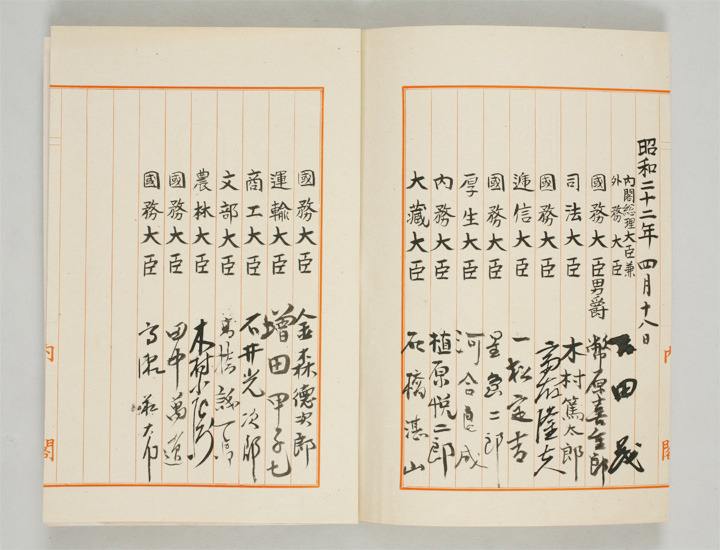 昭和二十二年四月十八日
内閣総理大臣兼
外務大臣 吉田茂
國務大臣男爵 幣原喜重郎
司法大臣 木村篤太郎
國務大臣 斎藤隆夫
逓信大臣 一松定吉
國務大臣 星島二郎
厚生大臣 河合良成
内務大臣 植原悦二郎
大藏大臣 石橋湛山
内閣
國務大臣 金森德次郎
運輸大臣 増田甲子七
商工大臣 石井光次郎
文部大臣 高橋誠一郎
農林大臣 木村小左衛門
國務大臣 田中萬逸
國務大臣 高瀬荘太郎
内閣